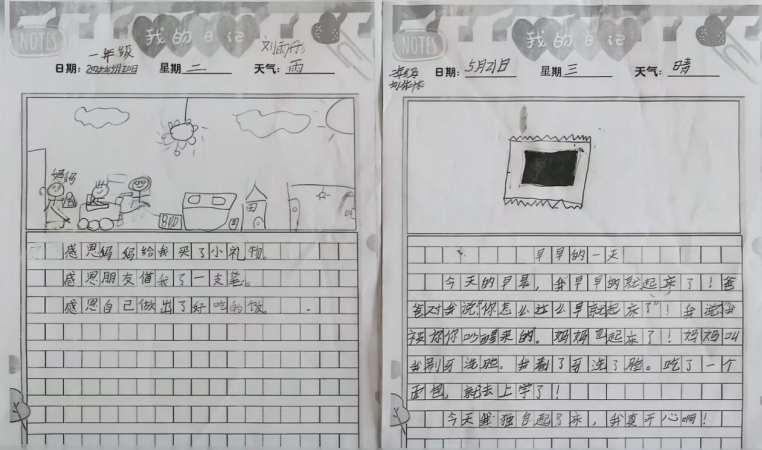 NOTES
我的日记
一年级
日期: 2025年5月20日 星期 二 天气: 雨
妈妈
感恩妈妈给我买了小礼物。
感恩朋友借我了一支笔。
感恩自己做出了好吃的饭。
NOTES
我的日记
日期: 5月21日 星期 三 天气: 晴
早早的一天
今天的早晨,我早早的就起来了!爸
爸对我说"你怎么这么早就起来了"!我说我
被你吵醒来的。妈妈也起来了!妈妈叫
我刷牙洗脸。我刷了牙洗了脸。吃了一个
面包,就去上学了!
今天我独自起了床,我真开心啊!